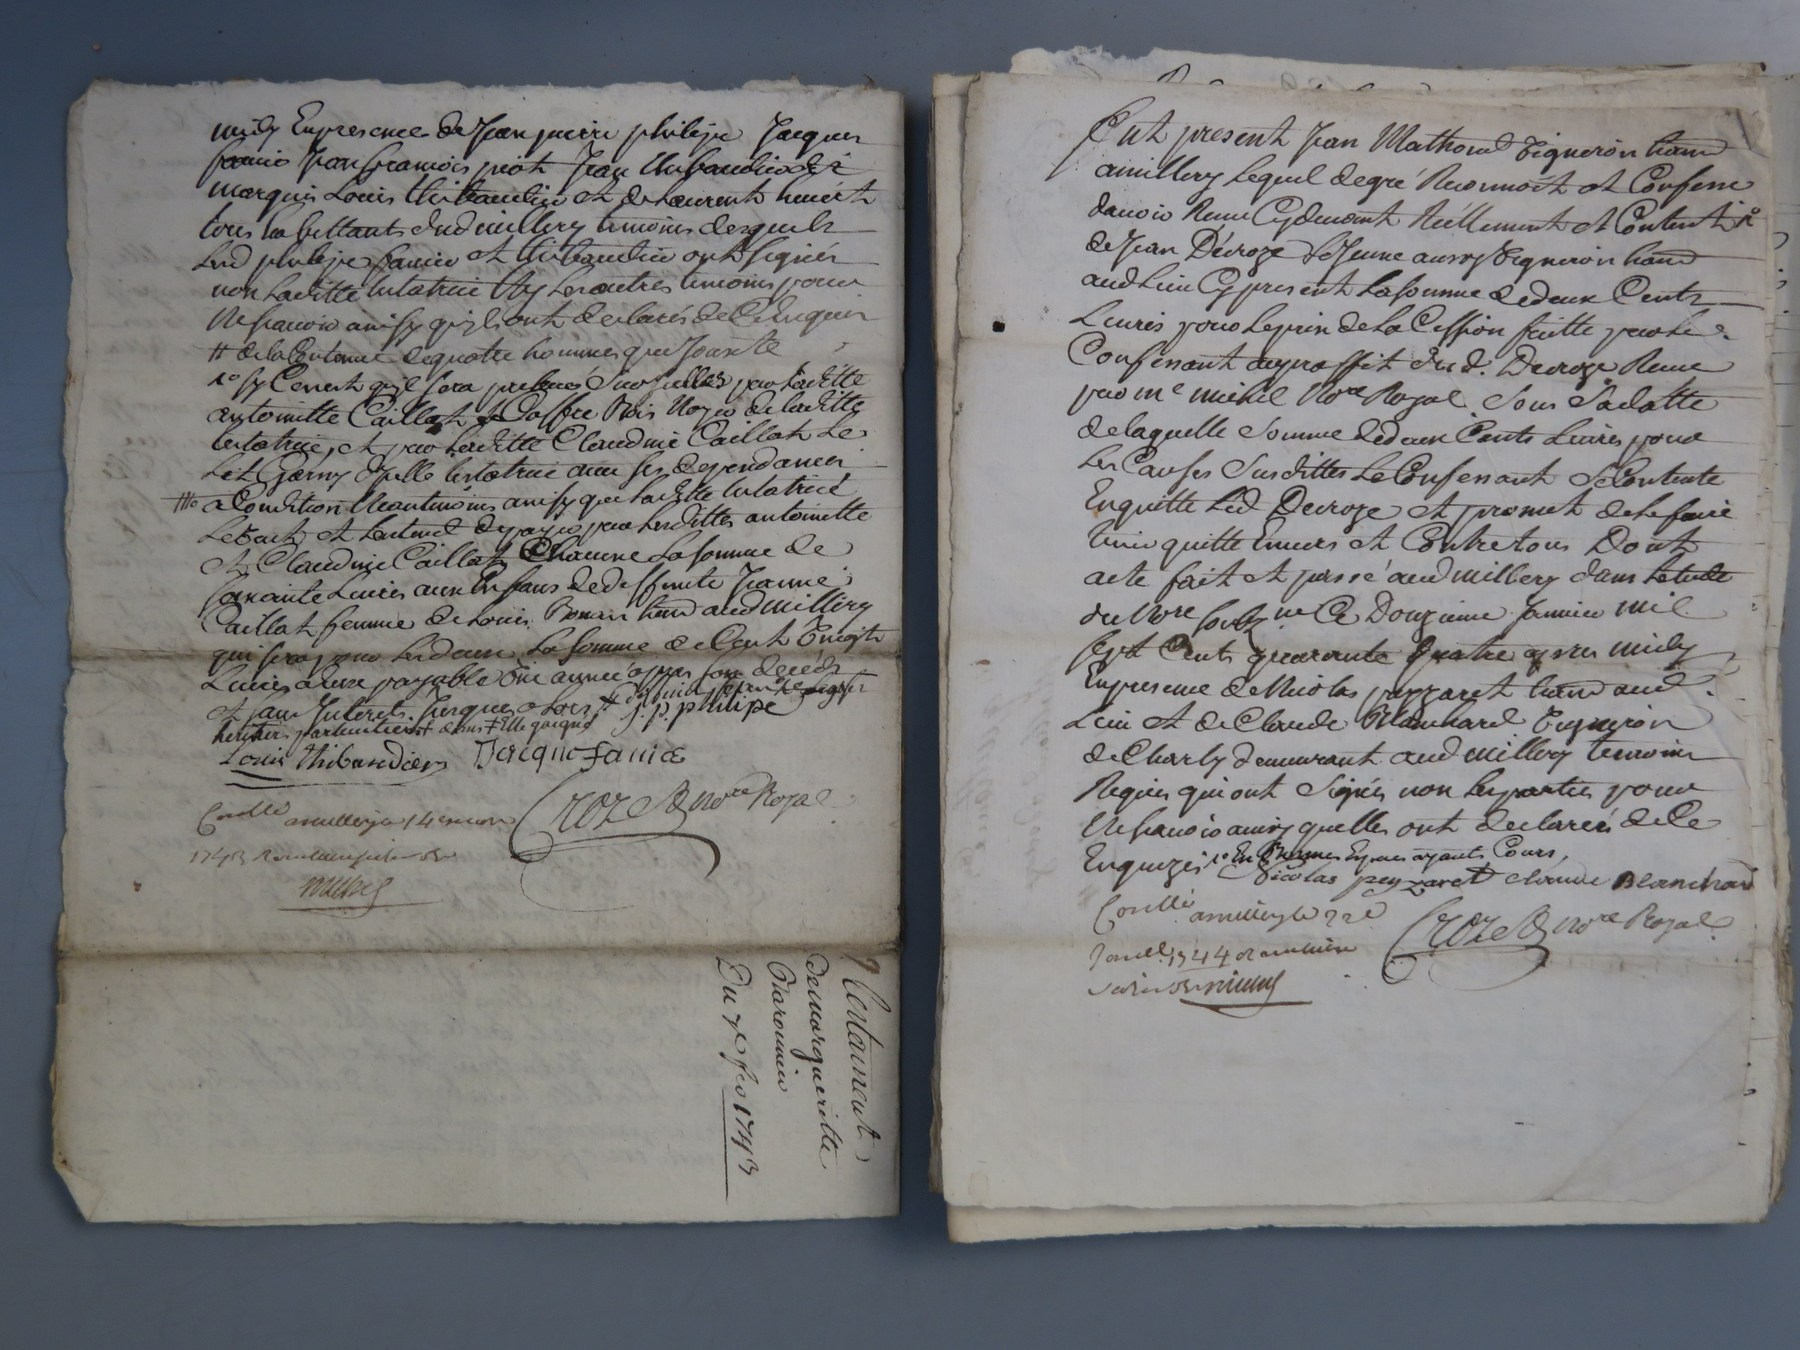 midy En presence de Jean pierre philipe Jacques
famié Jean francois piot Jean thibaudier de
marquis Louis thibaudier et de Laurent
tous habittants dud millery temoins desquels
Led philipe famier et thibaudier ont signés
non Laditte testatrice Ny Les autres temoins pour
Ne scavoir ainsy quils ont declarés de Ce Enquis
# de la Contenue de quatre hommes que Jouxte
1o sy Ce n'est qu'il sera prelevé Sur par Laditte
antoinette Caillat Coffre Bois Noyer de laditte
testatrice, et par Laditte Claudine Caillat Le
Lit Garny d'ycelle testatrice avec ses dependances
a Condition Neantmoins ainsy que Laditte testatrice
Le veut et Lentend de payer par Lesdittes antoinette
et Claudine Caillat Chacune La somme de
soixante Livres aux Enfans de deffunte Jeanne
Caillat femme de Louis Bonan audmillery
qui sera pour Les deux La somme de Cent Vingts
Livres a Eux payable Une année appres son decéds
et sans Interets Jusques alors
heritiers particuliers
J. p. philipe
Louis thibaudier Jacque famie
Croze Nore Royal
Conllé amillery le 14e
1743
michel
Testament
de margueritte
Du 7e feo 1743
Fut present Jean Mathoud Vigneron
amillery Lequel de gré Reconnoit et Confesse
davoir Receu Cydevant Reellement et Contant 1o
de Jean Décroze Le Jeune aussy Vigneron
aud Lieu Cy present La somme de deux Cents
Livres pour Le prix de La Cession faitte par Le
Confessant au proffit dud. Decroze Receue
par Me michel Nore Royal Sous Sa datte
de laquelle somme de deux Cents Livres pour
Les Causes Susdittes Le Confessant se Contente
En quitte Led Decroze et promet de Le faire
tenir quitte Envers et Contre tous Dont
acte fait et passé aud millery dans Letude
du Nore soubzne Ce Douzieme Janvier mil
sept Cents quarante quatre apres midy
En presence de Nicolas peyzaret aud
Lieu et de Claude Blanchard Vigneron
de Charly demeurant aud millery temoins
Requis qui ont signés non Les parties pour
Ne scavoir ainsy quelles ont declarées de Ce
Enquizes 1o En Bonnes Especes ayants Cours,
Nicolas peyzaret claude Blanchard
Conllé amillery le 22e
Janv 1744
michel
Croze Nore Royal